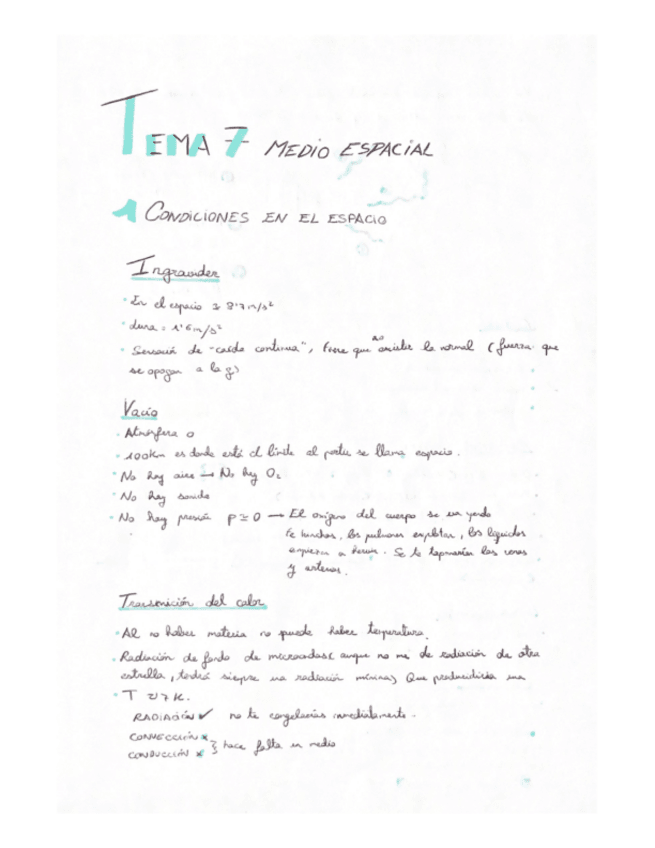 TEMA 7 MEDIO ESPACIAL
1 CONDICIONES EN EL ESPACIO
Ingravidez
• En el espacio 8'7 m/s²
• luna = 1'6 m/s²
• Sensación de "caída continua", Tiene que no existir la normal (fuerza que
se opogan a la g)
Vacío
• Atmósfera 0
• 100Km es donde está el límite al partir se llama espacio.
• No hay aire → No hay O₂
• No hay sonido
• No hay presión p ≃ 0 → El oxígeno del cuerpo se va yendo
te hinchas, los pulmones explotan, los líquidos
empiezan a hervir. Se te taponarían las venas
y arterias.
Transmición del calor
• Al no haber materia no puede haber temperatura.
• Radiación de fondo de microondas (aunque no me de radiación de otra
estrella, tendrá siempre una radiación mínima) Que produciría una
• T 2'7 K.
RADIACIÓN ✓ no te congelarías inmediatamente.
CONVECCIÓN x
CONDUCCIÓN x } hace falta un medio